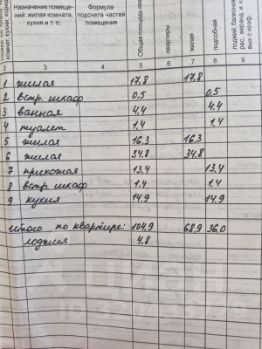 Назначение помещений: жилая комната, кухня и т. п.
Формула подсчета частей помещения
Общая площадь
квартиры
жилая
подсобная
2 3 4 5 6 7 8 9
1 жилая 17,8 17,8
2 встр. шкаф 0,5 0,5
3 ванная 4,4 4,4
4 туалет 1,4 1,4
5 жилая 16,3 16,3
6 жилая 34,8 34,8
7 прихожая 13,4 13,4
8 встр. шкаф 1,4 1,4
9 кухня 14,9 14,9
итого по квартире: 104,9 68,9 36,0
лоджия 4,8